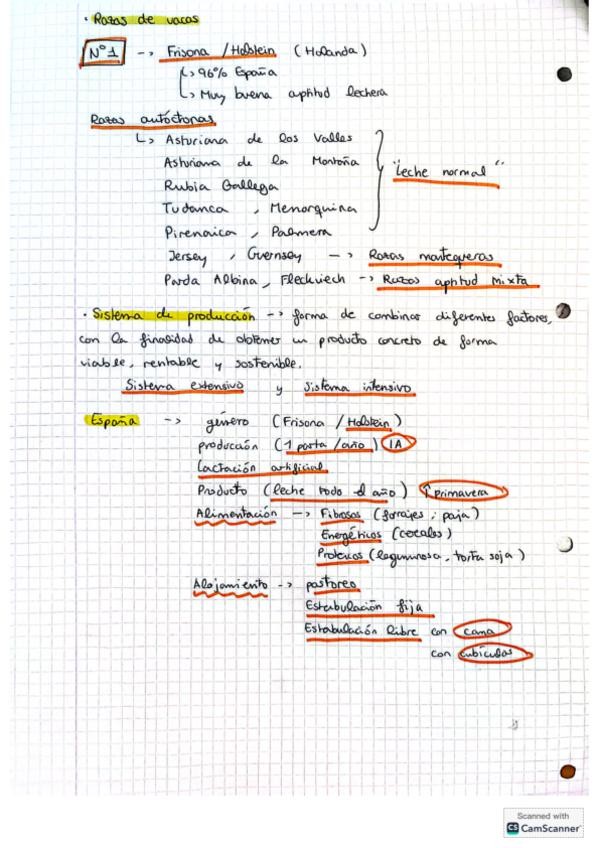 · Razas de vacas
Nº1 -> Frisona / Holstein (Holanda)
↳ 96% España
↳ Muy buena aptitud lechera
Razas autóctonas
↳ Asturiana de los Valles
Asturiana de la Montaña
Rubia Gallega
Tudanca, Menorquina
Pirenaica, Palmera
"Leche normal"
Jersey, Guernsey -> Razas mantequeras
Parda Albina, Fleckviech -> Razas aptitud Mixta
· Sistema de producción -> forma de combinar diferentes factores,
con la finalidad de obtener un producto concreto de forma
viable, rentable y sostenible.
Sistema extensivo y Sistema intensivo
España -> género (Frisona / Holstein)
producción (1 parto/año) IA
Lactación artificial
Producto (leche todo el año) ↑primavera
Alimentación -> Fibrosos (forrajes, paja)
Energéticos (cereales)
Proteicos (leguminosa, torta soja)
Alojamiento -> pastoreo
Estabulación fija
Estabulación libre con cama
con cubículos
Scanned with
CS CamScanner